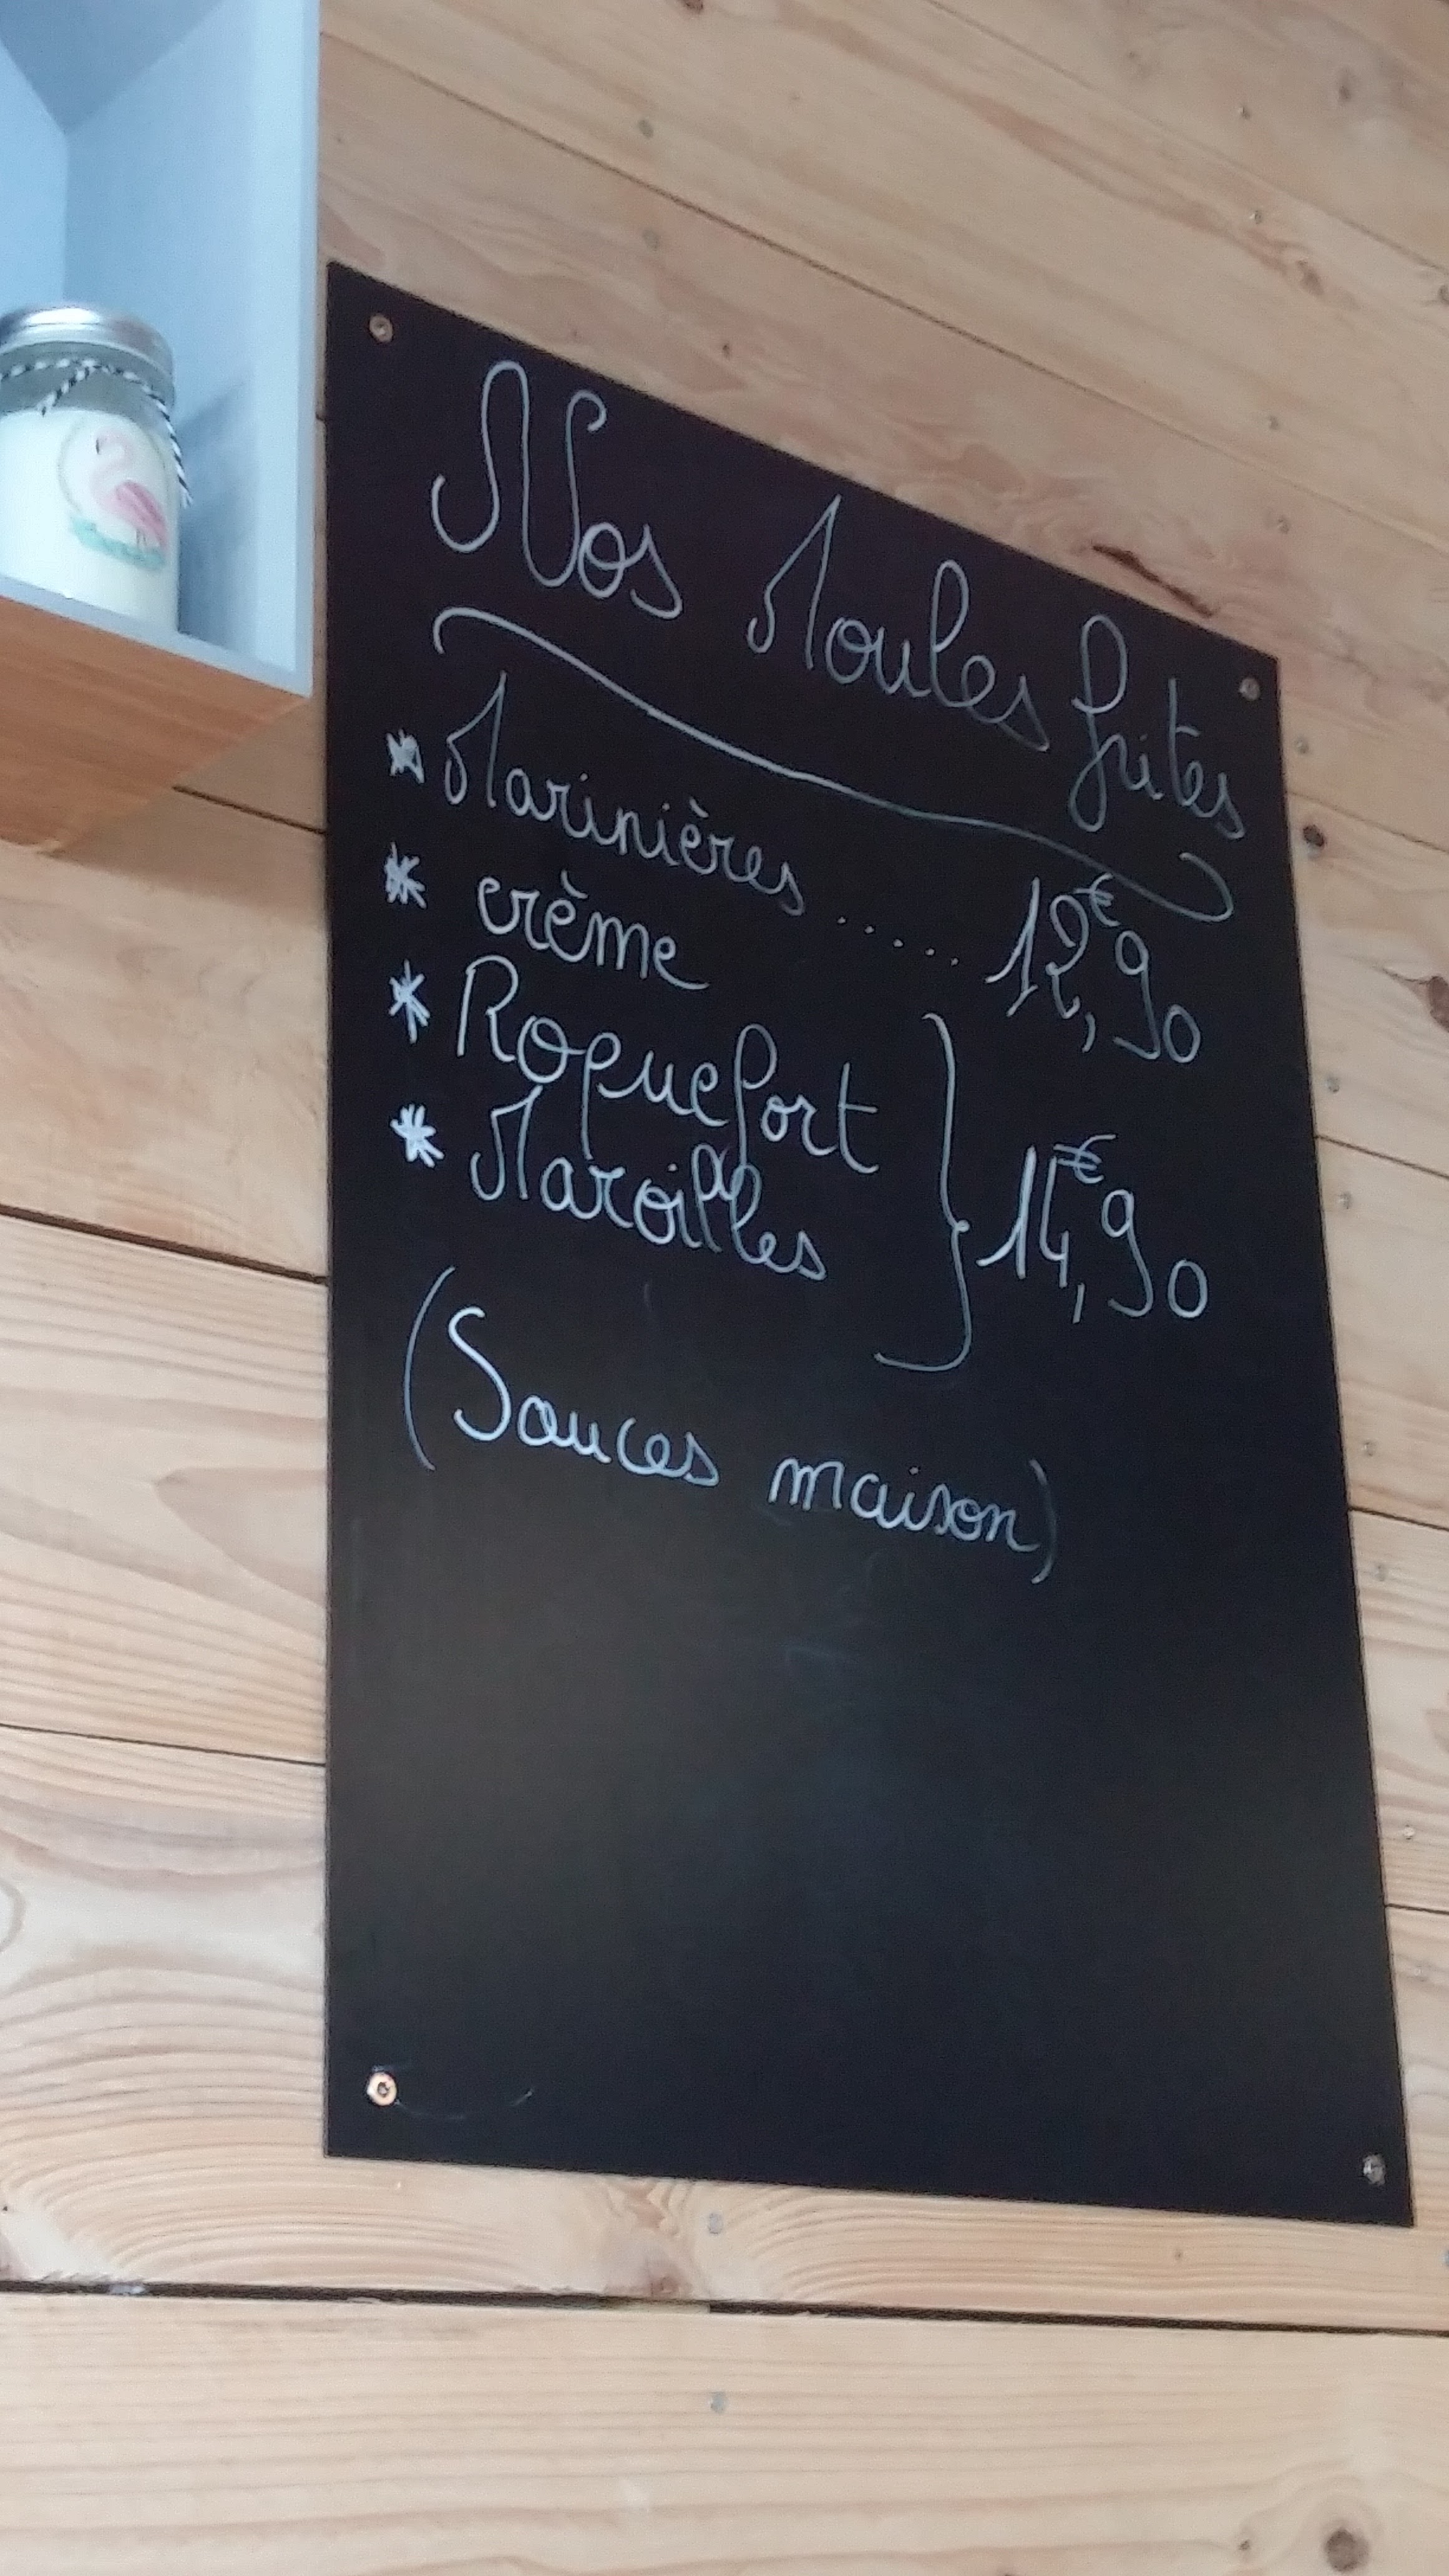 Nos Moules frites
* Marinières ..... 12€,90
* crème
* Roquefort
* Maroilles } 14€,90
(Sauces maison)